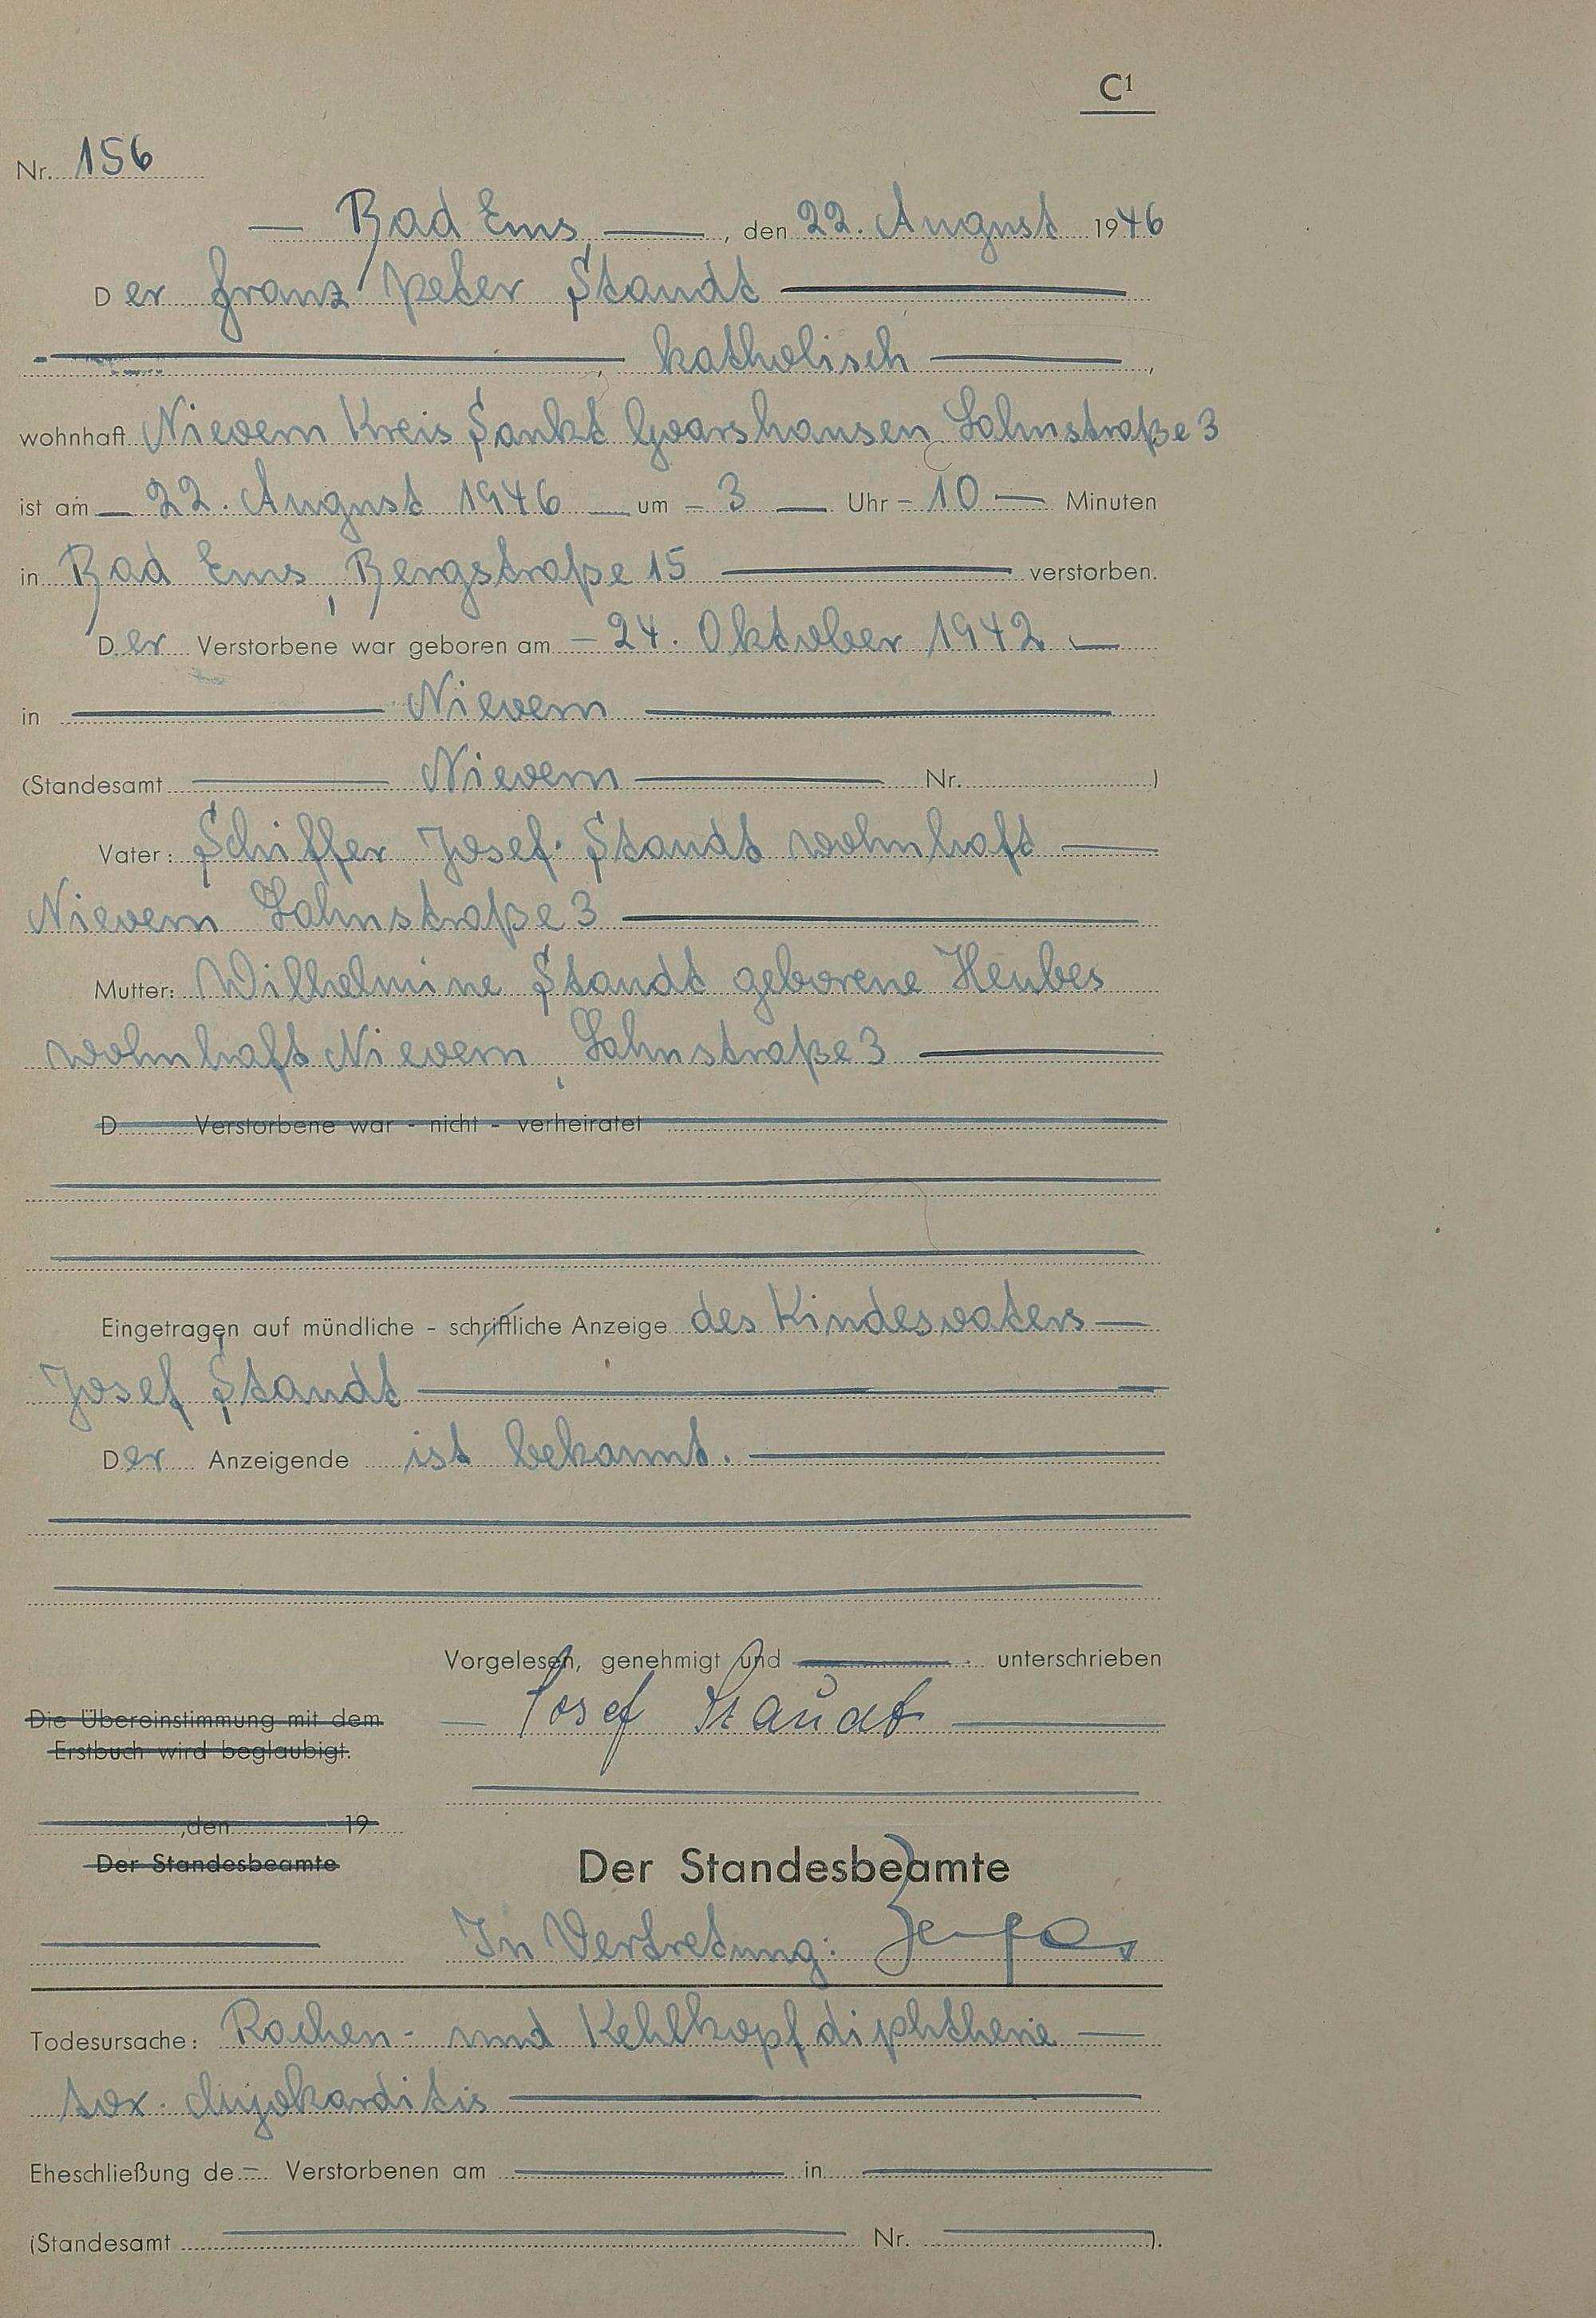 C1
Nr. 156
Bad Ems, den 22. August 1946
Der Franz Peter Staudt
, katholisch,
wohnhaft Nievern Kreis Sankt Goarshausen Lahnstraße 3
ist am 22. August 1946 um 3 Uhr 10 Minuten
in Bad Ems, Bergstraße 15 verstorben.
Der Verstorbene war geboren am 24. Oktober 1942
in Nievern
(Standesamt Nievern Nr. )
Vater: Schiffer Josef Staudt wohnhaft
Nievern Lahnstraße 3
Mutter: Wilhelmine Staudt geborene Heubes
wohnhaft Nievern, Lahnstraße 3
D Verstorbene war - nicht - verheiratet
Eingetragen auf mündliche - schriftliche Anzeige des Kindesvaters
Josef Staudt
Der Anzeigende ist bekannt.
Vorgelesen, genehmigt und unterschrieben
Josef Staudt
Die Übereinstimmung mit dem
Erstbuch wird beglaubigt.
, den 19
Der Standesbeamte
Der Standesbeamte
In Vertretung:
Todesursache: Rachen- und Kehlkopfdiphtherie
tox. Myokarditis
Eheschließung de Verstorbenen am in
(Standesamt Nr. ).